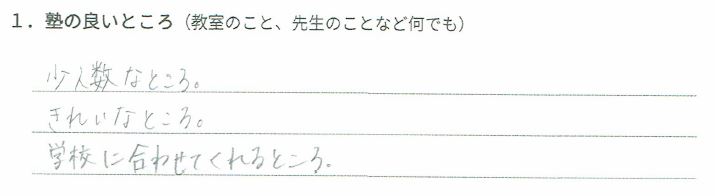 1．塾の良いところ（教室のこと、先生のことなど何でも）
少人数なところ。
きれいなところ。
学校に合わせてくれるところ。